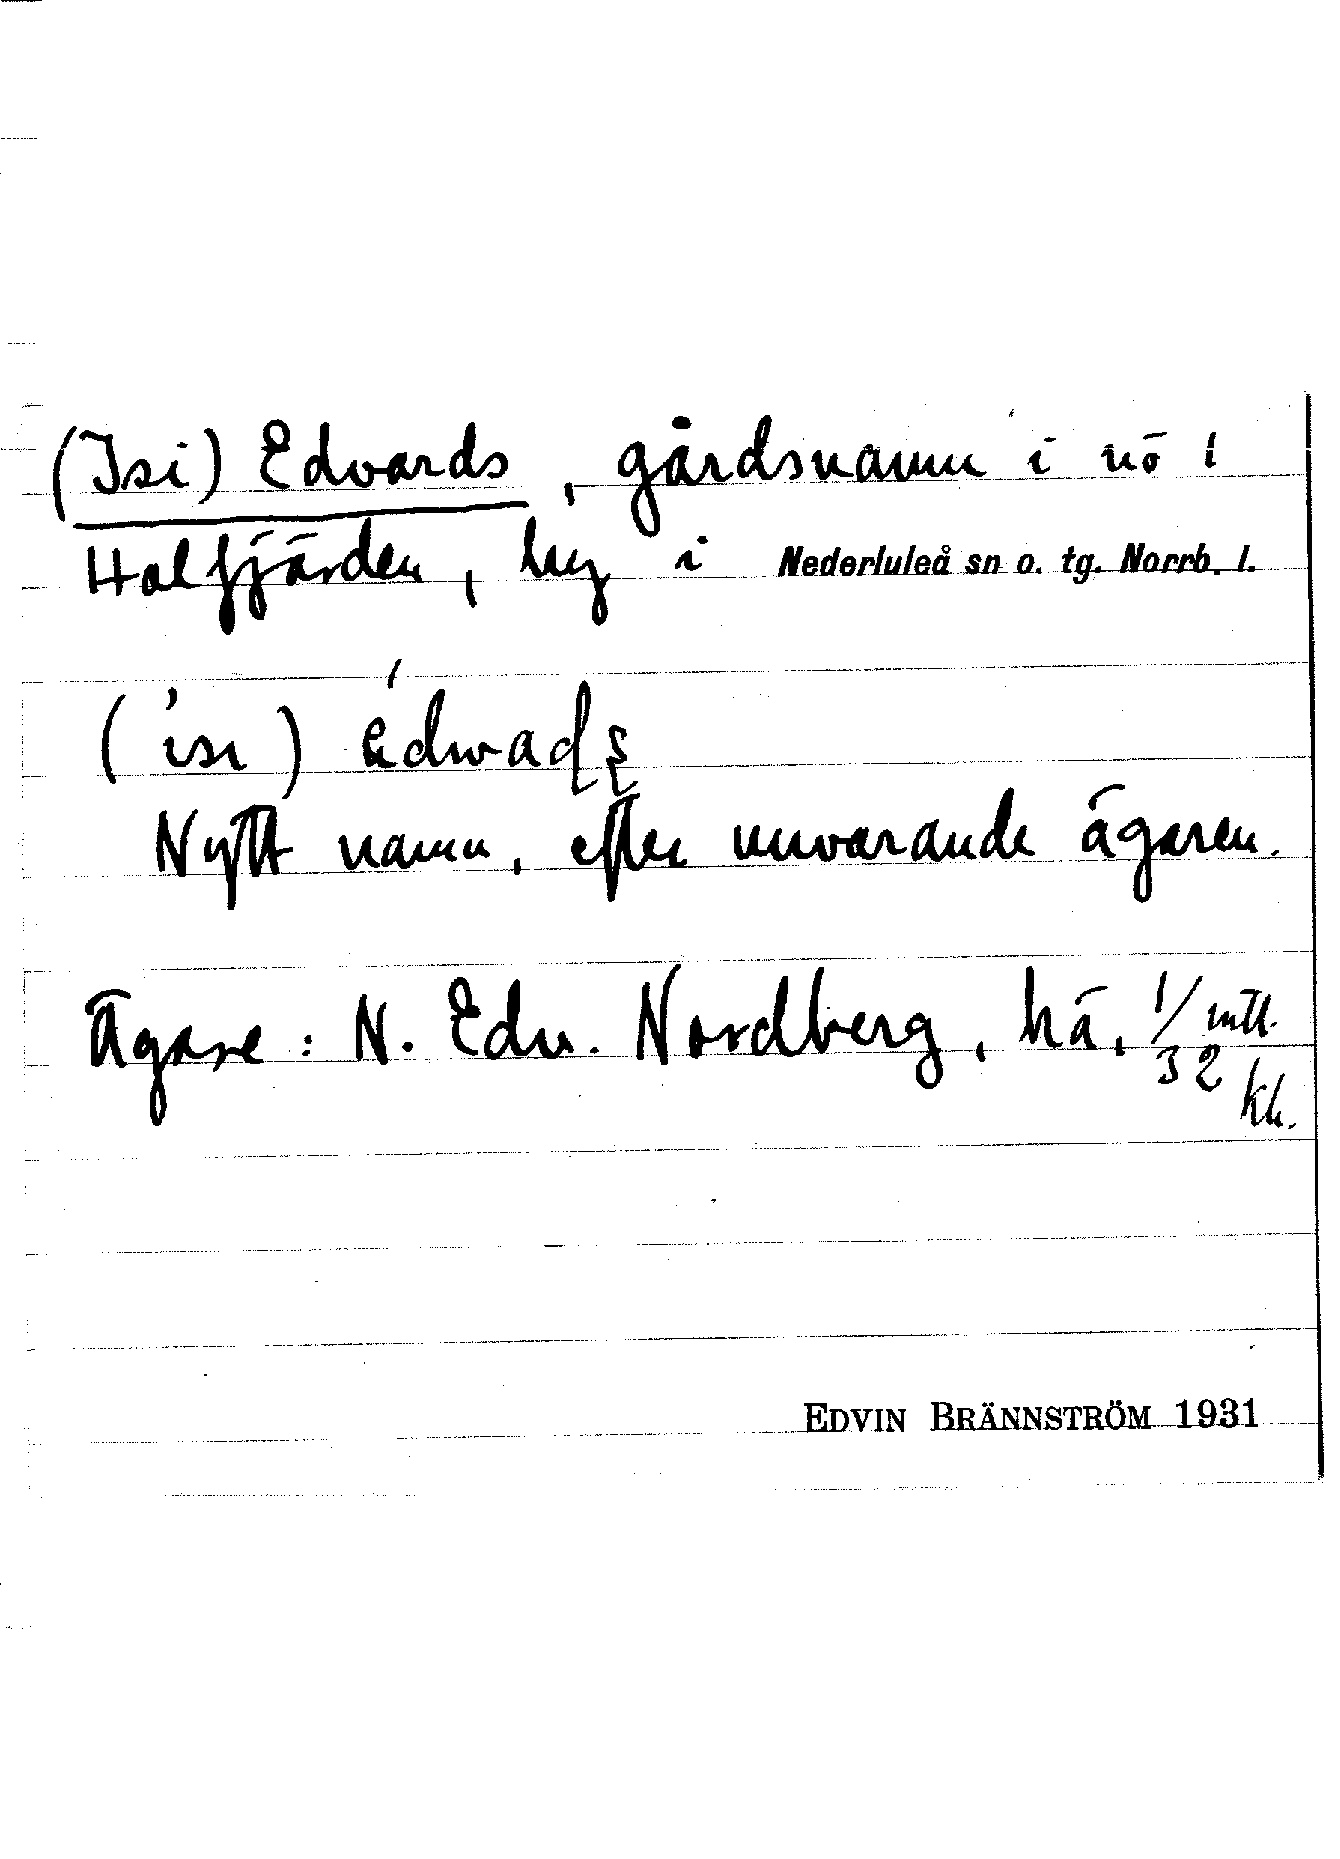 (Isi) Edvards, gårdsnamn i nö i
Halfjärden, by i Nederluleå sn o. tg. Norrb. l.
(isi)
Nytt namn, efter nuvarande ägaren.
Ägare: N. Edv. Nordberg, hä, 1/32 mtl.
kh.
EDVIN BRÄNNSTRÖM 1931